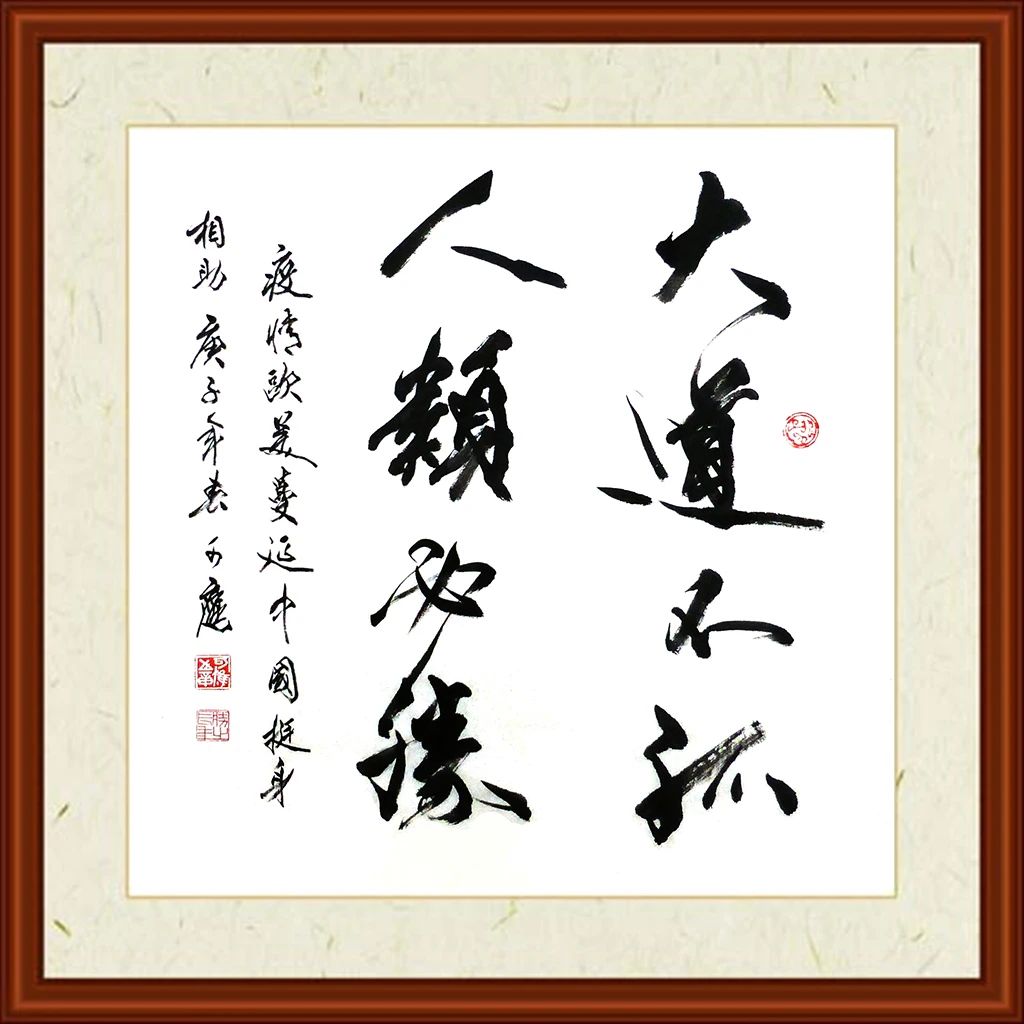 大道不孤
人類必勝
疫情歐美蔓延中國挺身
相助 庚子年春 可應